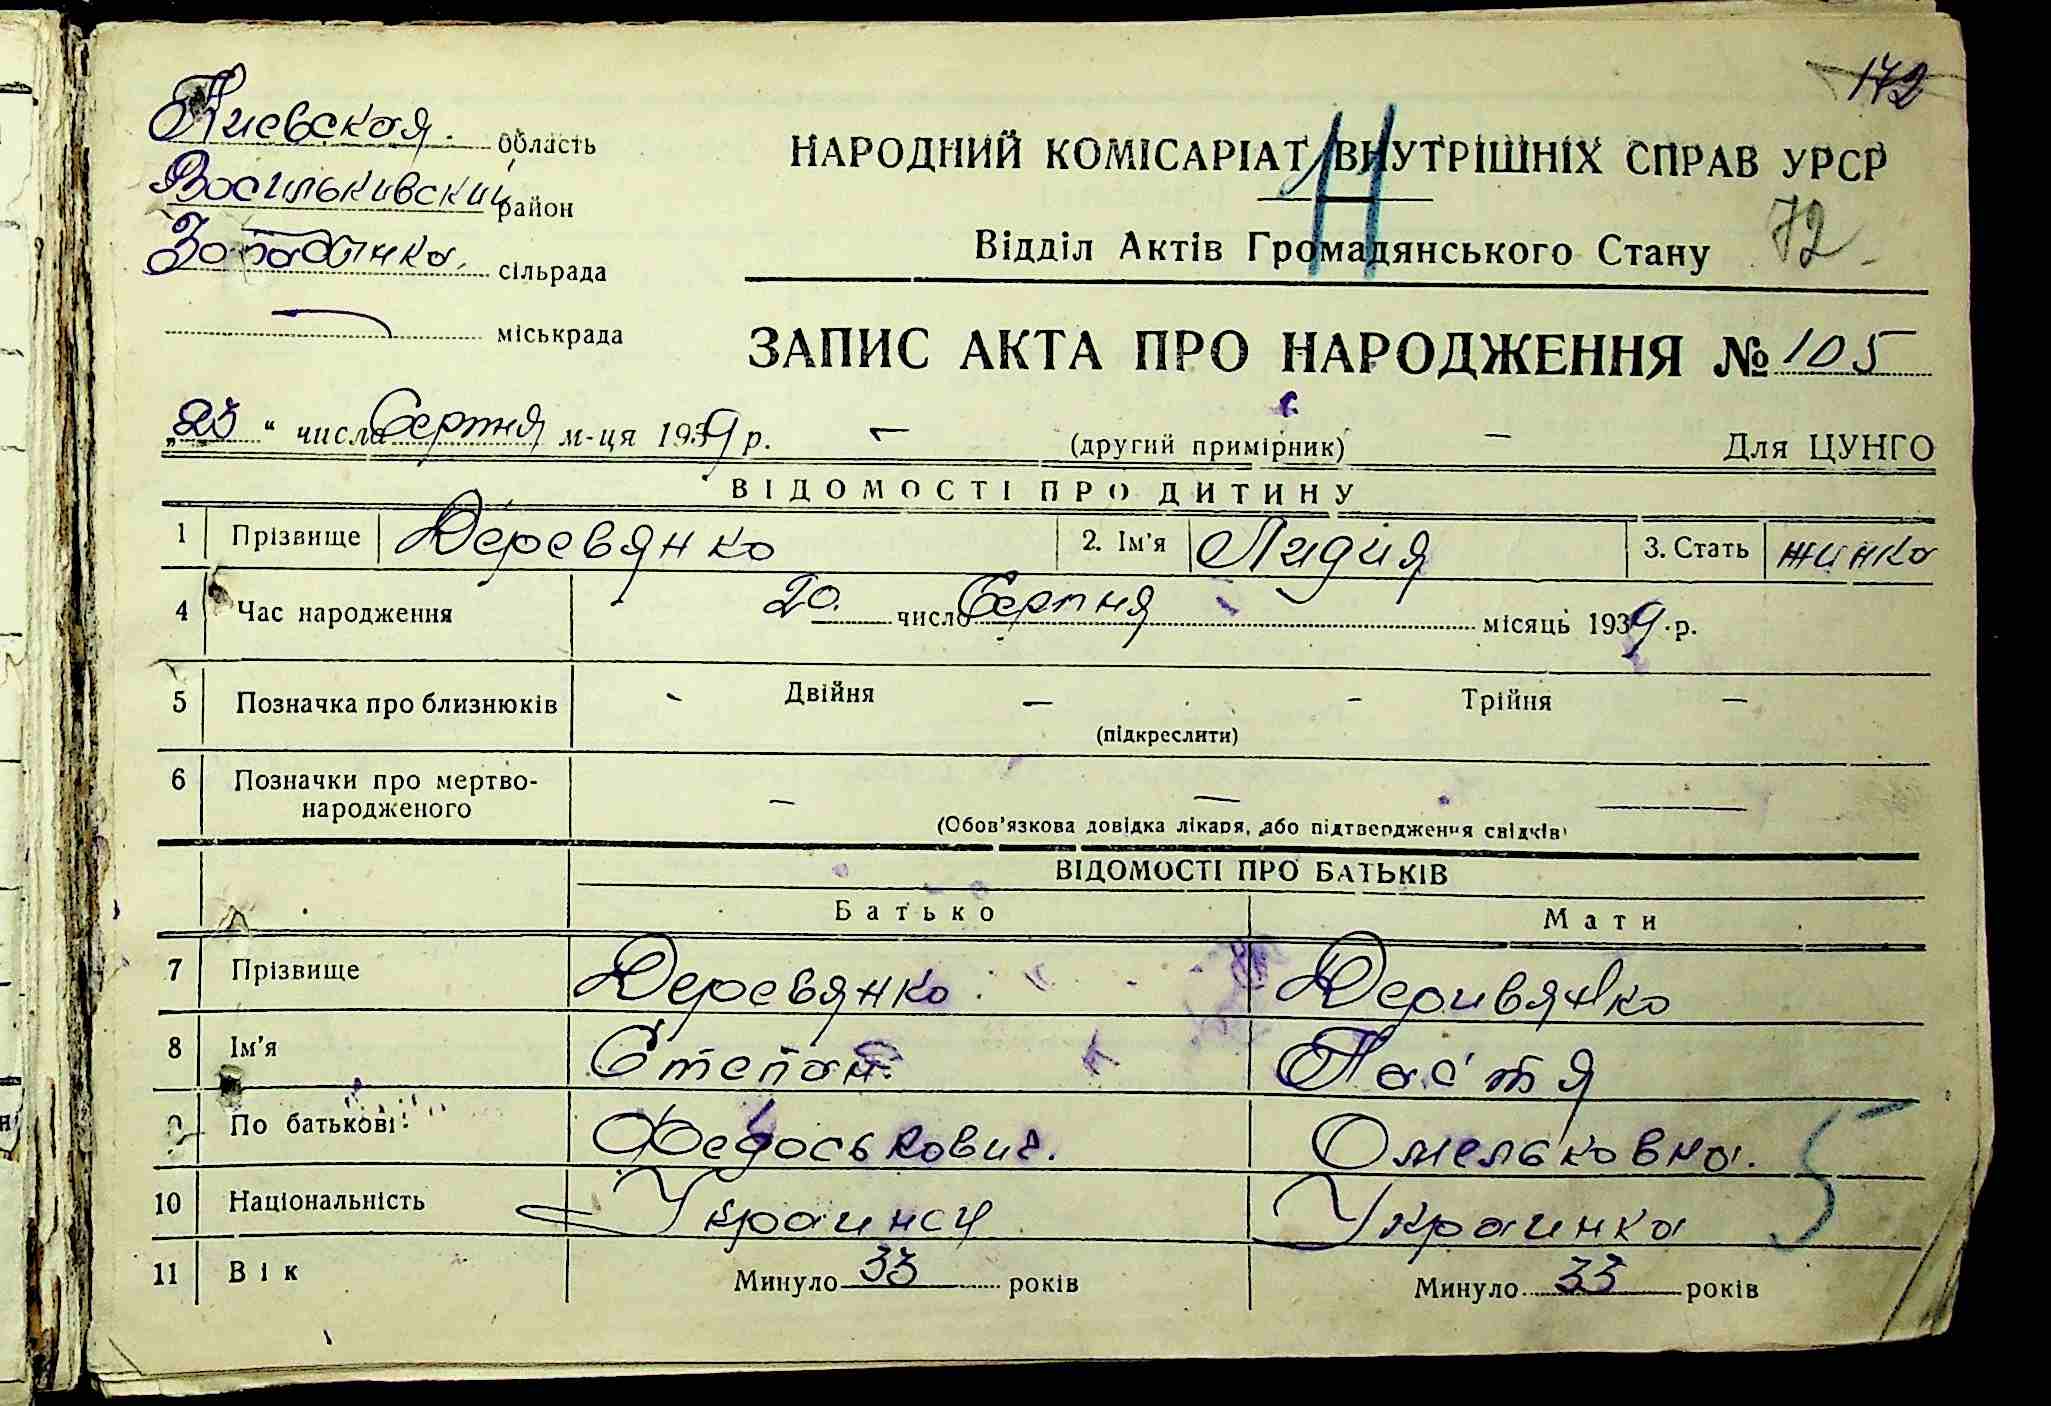 172
Киевская область
Васильkивский район
сільрада
міськрада
НАРОДНИЙ КОМІСАРІАТ ВНУТРІШНІХ СПРАВ УРСР
Н
Відділ Актів Громадянського Стану 72.
ЗАПИС АКТА ПРО НАРОДЖЕННЯ № 105
„23“ числа Серпня м-ця 1939 р. — (другий примірник) — Для ЦУНГО
ВІДОМОСТІ ПРО ДИТИНУ
1 Прізвище Деревянко 2. Ім'я Лидия 3. Стать жинка
4 Час народження 20. число Серпня місяць 1939 р.
5 Позначка про близнюків - Двійня — - Трійня —
(підкреслити)
6 Позначки про мертво-
народженого — — —
(Обов'язкова довідка лікаря, або підтвердження свідків)
ВІДОМОСТІ ПРО БАТЬКІВ
Батько Мати
7 Прізвище Деревянко Деривянко
8 Ім'я Степан. Настя
9 По батькові Федоськович. Омельковна.
10 Національність Украинец Украинка
5
11 Вік Минуло 33 років Минуло 33 років